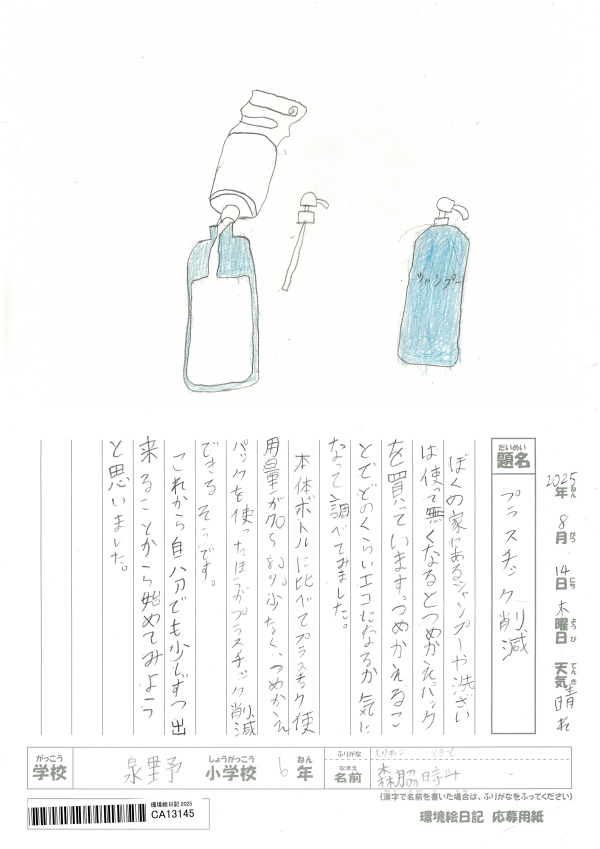 シャンプー
2025年 8月 14日 木曜日 天気 晴れ
ねん がつ にち ようび てんき
だいめい
題名
プラスチック削減
ぼくの家にあるシャンプーや洗ざい
は使って無くなるとつめかえパック
を買っています。つめかえるこ
とでどのくらいエコになるか気に
なって調べてみました。
本体ボトルに比べてプラスチック使
用量が70～80%少なく、つめかえ
パックを使ったほうがプラスチック削減
できるそうです。
これから自分でも少しずつ出
来ることから始めてみよう
と思いました。
がっこう
学校
泉野
しょうがっこう
小学校
6
ねん
年
ふりがな
なまえ
名前
森脇時斗
(漢字で名前を書いた場合は、ふりがなをふってください)
環境絵日記 2025
CA13145
環境絵日記 応募用紙